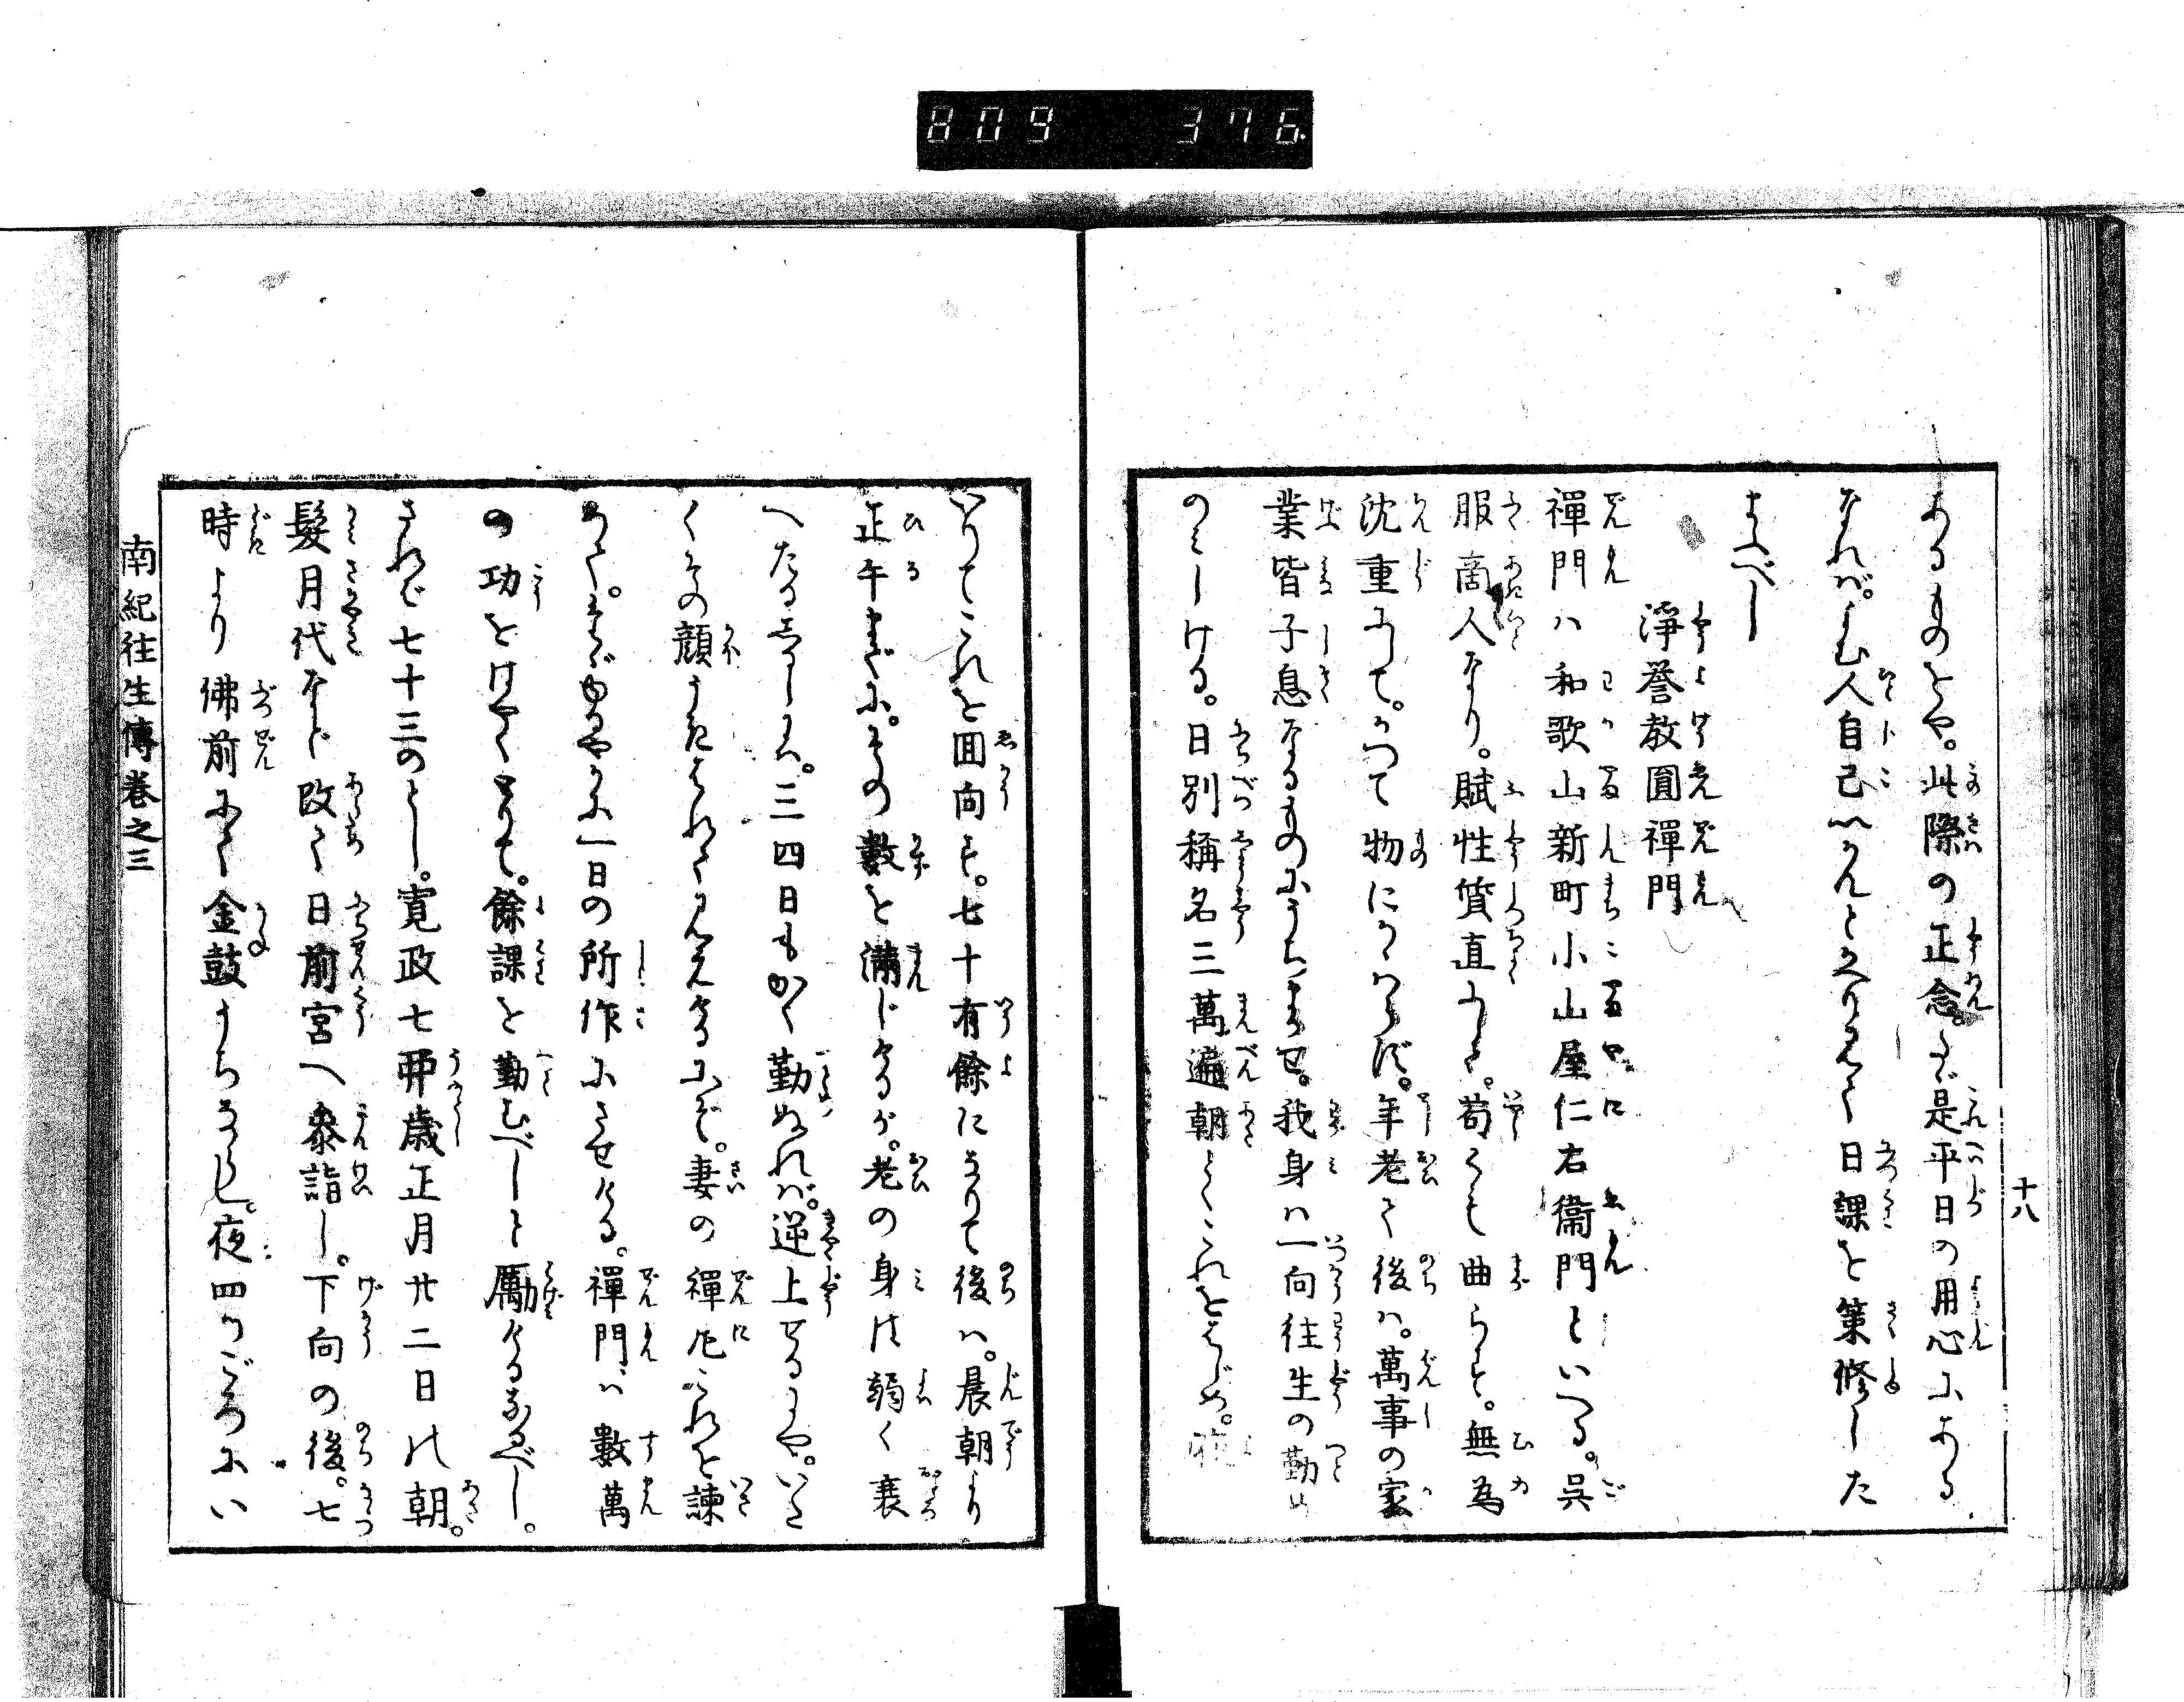 809 376
十八
あるものをや。此際の正念。たゞ是平日の用心にある
なれバ。よむ人自己いかんとかへりみて日課を策修した
まふべし
淨誉教圓禪門
禪門ハ和歌山新町小山屋仁右衞門といへる。呉
服商人なり。賦性質直にして。苟くも曲らず。無為
沈重にして。かつて物にかゝはらず。年老て後ハ。萬事の家
業皆子息なるものにうちまかせ。我身ハ一向往生の勤め
のミしける。日別稱名三萬遍朝とくこれをはじめ。夜
いりてこれを囬向す。七十有餘になりて後ハ。晨朝より
正午までに。その數を満じけるが。老の身は弱く衰
へたる
三四日もかく勤めぬれバ。逆上せるにや。いた
くその顔うたはれて見えけるにぞ。妻の禪尼これを諫
めて。まづゆるやかに一日の所作にさせける。禪門ハ數萬
の功をはやくをへて。餘課を勤むべしと勵けるなるべし。
されど七十三のとし。寛政七乙卯歳正月廿二日の朝。
髮月代など改て日前宮へ參詣し。下向の後。七
時より佛前にて金鼓うちならし。夜四ツごろにい
南紀往生傳巻之三